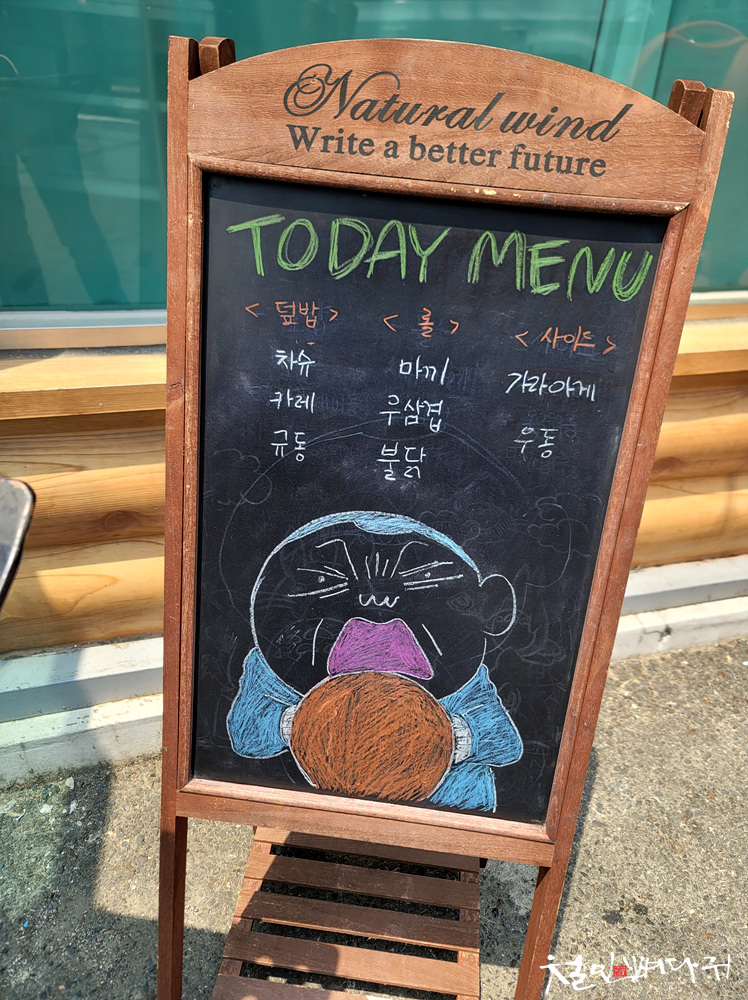 Natural wind
Write a better future
TODAY MENU
< 덮밥 > < 롤 > < 사이드 >
차슈 마끼 가라아게
카레 우삼겹 우동
규동 불닭